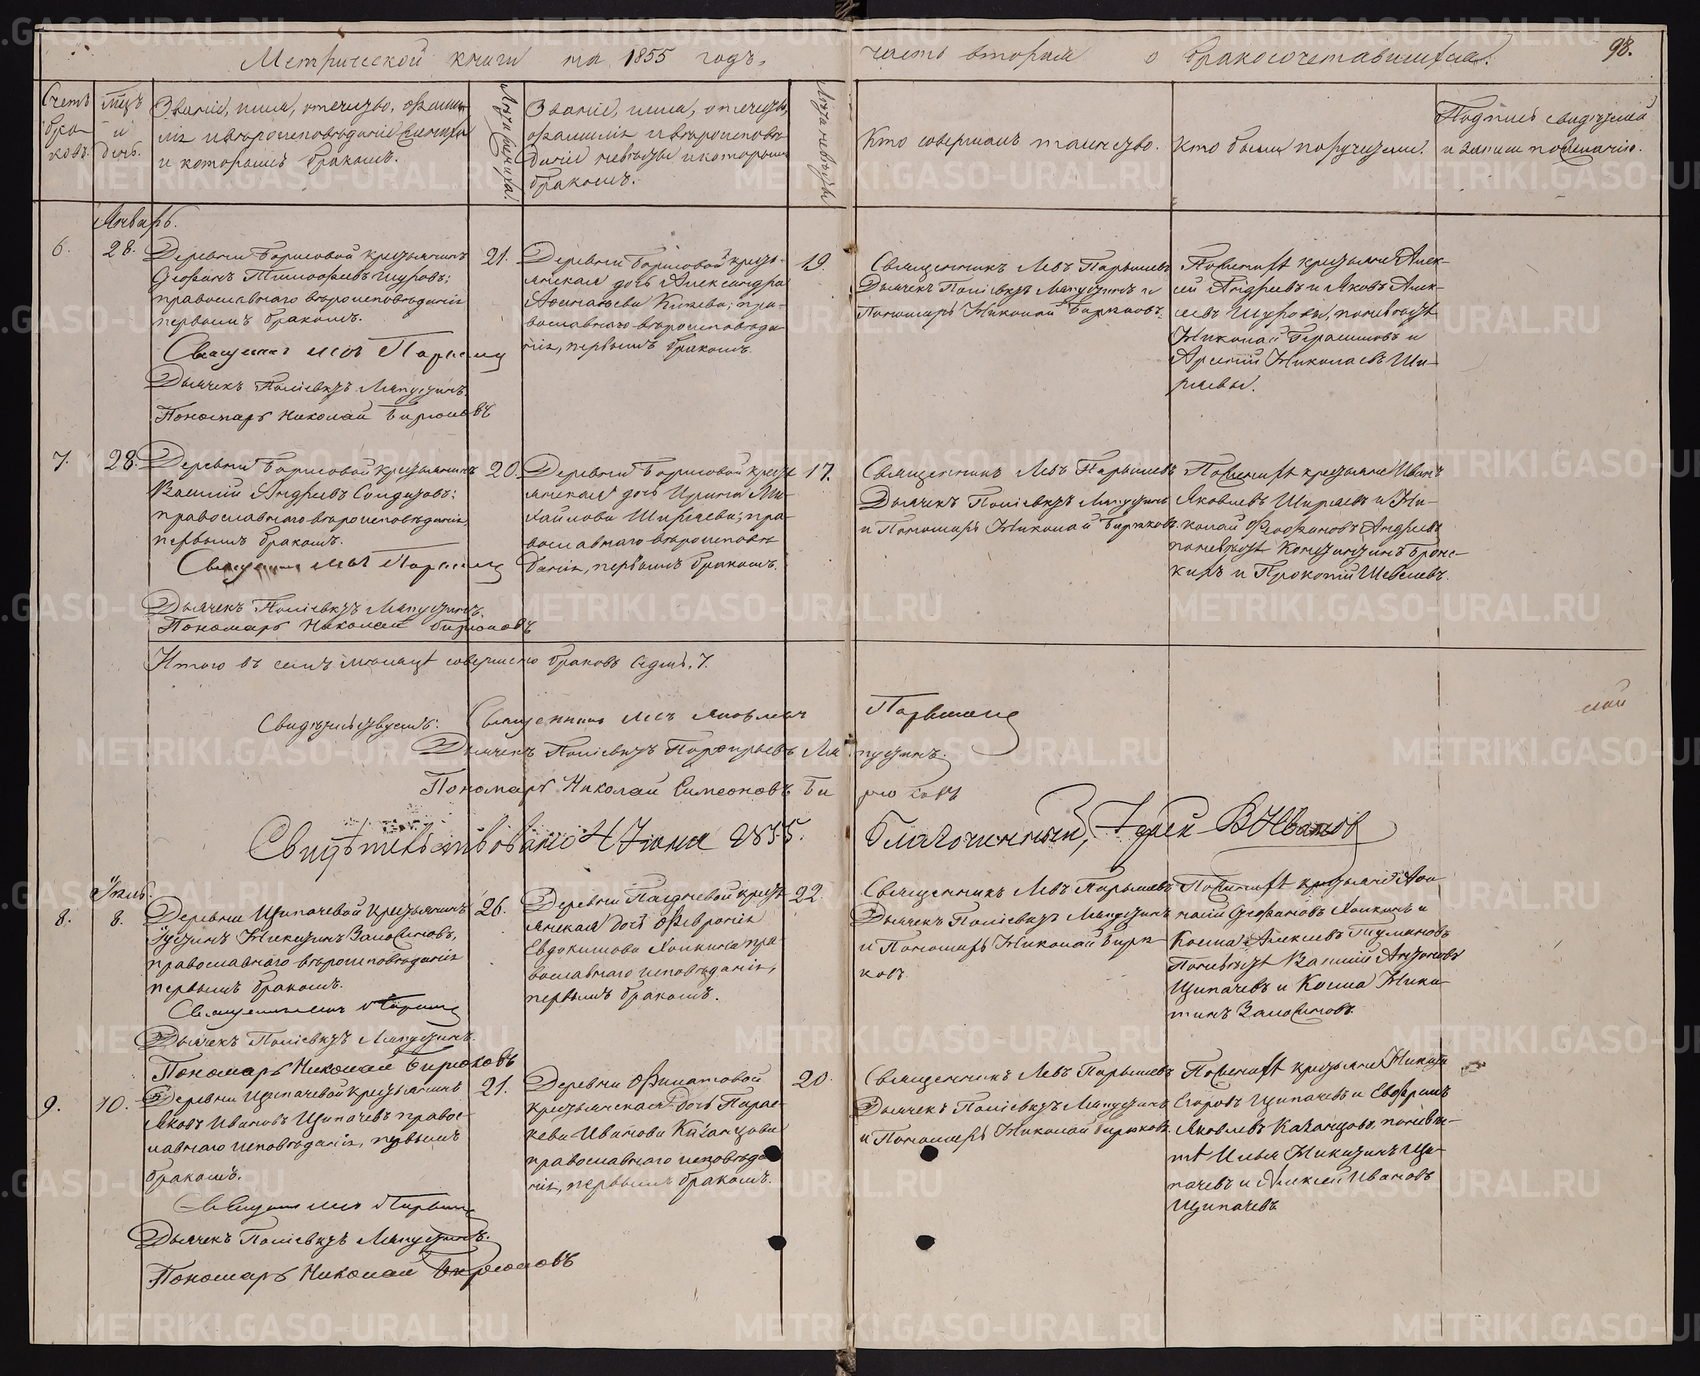 Метрической книги на 1855 годъ, часть вторая о бракосочетавшихся. 98.
Счетъ браковъ.
Мѣсяцъ и день.
Званіе, имя, отечество, фамилія и вѣроисповѣданіе жениха
и которымъ бракомъ.
Лѣта жениха.
Званіе, имя, отечество,
фамилія и вѣроисповѣ-
даніе невѣсты и которымъ
бракомъ.
Лѣта невѣсты
Кто совершалъ таинство.
Кто были поручители.
Подпись свидѣтелей
и записи по желанію.
Январь.
6.
28.
Деревни Борисовой крестьянинъ
Стефанъ Тимофѣевъ Шуровъ;
православнаго вѣроисповѣданія
первымъ бракомъ.
Священникъ Левъ Парышевъ
Дьячекъ Поліевктъ Ляпустинъ
Пономарь Николай Бирюковъ
21.
Деревни Борисовой кресть-
янская дочь Александра
Аѳанасьева Князева; пра-
вославнаго вѣроисповѣда-
нія, первымъ бракомъ.
19.
Священникъ Левъ Парышевъ
Дьячекъ Поліевктъ Ляпустинъ и
Пономарь Николай Бирюковъ.
По женихѣ крестьяне Алек-
сѣй Андреевъ и Яковъ Алек-
сѣевъ Шуровы, по невѣстѣ
Николай Герасимовъ и
Арсеній Николаевъ Ши-
ряевы.
7.
28.
Деревни Борисовой крестьянинъ
Василій Андреевъ
православнаго вѣроисповѣданія,
первымъ бракомъ.
Священникъ Левъ Парышевъ
Дьячекъ Поліевктъ Ляпустинъ.
Пономарь Николай Бирюковъ
20.
Деревни Борисовой кресть-
янская дочь Ирина Ми-
хайлова Ширяева; пра-
вославнаго вѣроисповѣ-
данія, первымъ бракомъ.
17.
Священникъ Левъ Парышевъ
Дьячекъ Поліевктъ Ляпустинъ
и Пономарь Николай Бирюковъ.
По женихѣ крестьяне Иванъ
Яковлевъ Ширяевъ и Ни-
колай Ѳеофановъ Андреевъ
по невѣстѣ Константинъ
и Прокопій Шевелевъ.
Итого въ семъ мѣсяцѣ совершено браковъ седмь. 7.
Свидѣтельствуемъ: Священникъ Левъ Яковлевъ Парышевъ
Дьячекъ Поліевктъ Порфирьевъ Ляпустинъ.
Пономарь Николай Симеоновъ Бирюковъ
Свидѣтельствовано 4 Іюня 1855. Благочинный, Іерей В Ивановъ
8.
8.
Деревни Щипачевой крестьянинъ
Іустинъ Никитинъ
православнаго вѣроисповѣданія
первымъ бракомъ.
Священникъ Левъ Парышевъ
Дьячекъ Поліевктъ Ляпустинъ.
Пономарь Николай Бирюковъ
26.
Деревни кресть-
янская дочь Февронія
Евдокимова пра-
вославнаго исповѣданія,
первымъ бракомъ.
22.
Священникъ Левъ Парышевъ
Дьячекъ Поліевктъ Ляпустинъ
и Пономарь Николай Бирю-
ковъ.
По женихѣ крестьяне
Стефановъ и
Косма Алексѣевъ
По невѣстѣ Василій Антоновъ
Щипачевъ и Косма Ники-
тинъ
9.
10.
Деревни Щипачевой крестьянинъ
Яковъ Ивановъ Щипачевъ правос-
лавнаго исповѣданія, первымъ
бракомъ.
Священникъ Левъ Парышевъ
Дьячекъ Поліевктъ Ляпустинъ.
Пономарь Николай Бирюковъ
21.
Деревни Филатовой
крестьянская дочь Парас-
кева Иванова Казанцова
православнаго исповѣда-
нія, первымъ бракомъ.
20.
Священникъ Левъ Парышевъ
Дьячекъ Поліевктъ Ляпустинъ
и Пономарь Николай Бирюковъ.
По женихѣ крестьяне Никита
Егоровъ Щипачевъ и
Яковлевъ Казанцовъ, по невѣс-
тѣ Илья Никитинъ Щи-
пачевъ и Алексѣй Ивановъ
Щипачевъ
METRIKI.GASO-URAL.RU